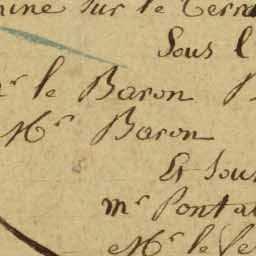 sur le Terr
Sous l
Mr le Baron
Mr Baron
Et Sous
mr Ponta
Mr le